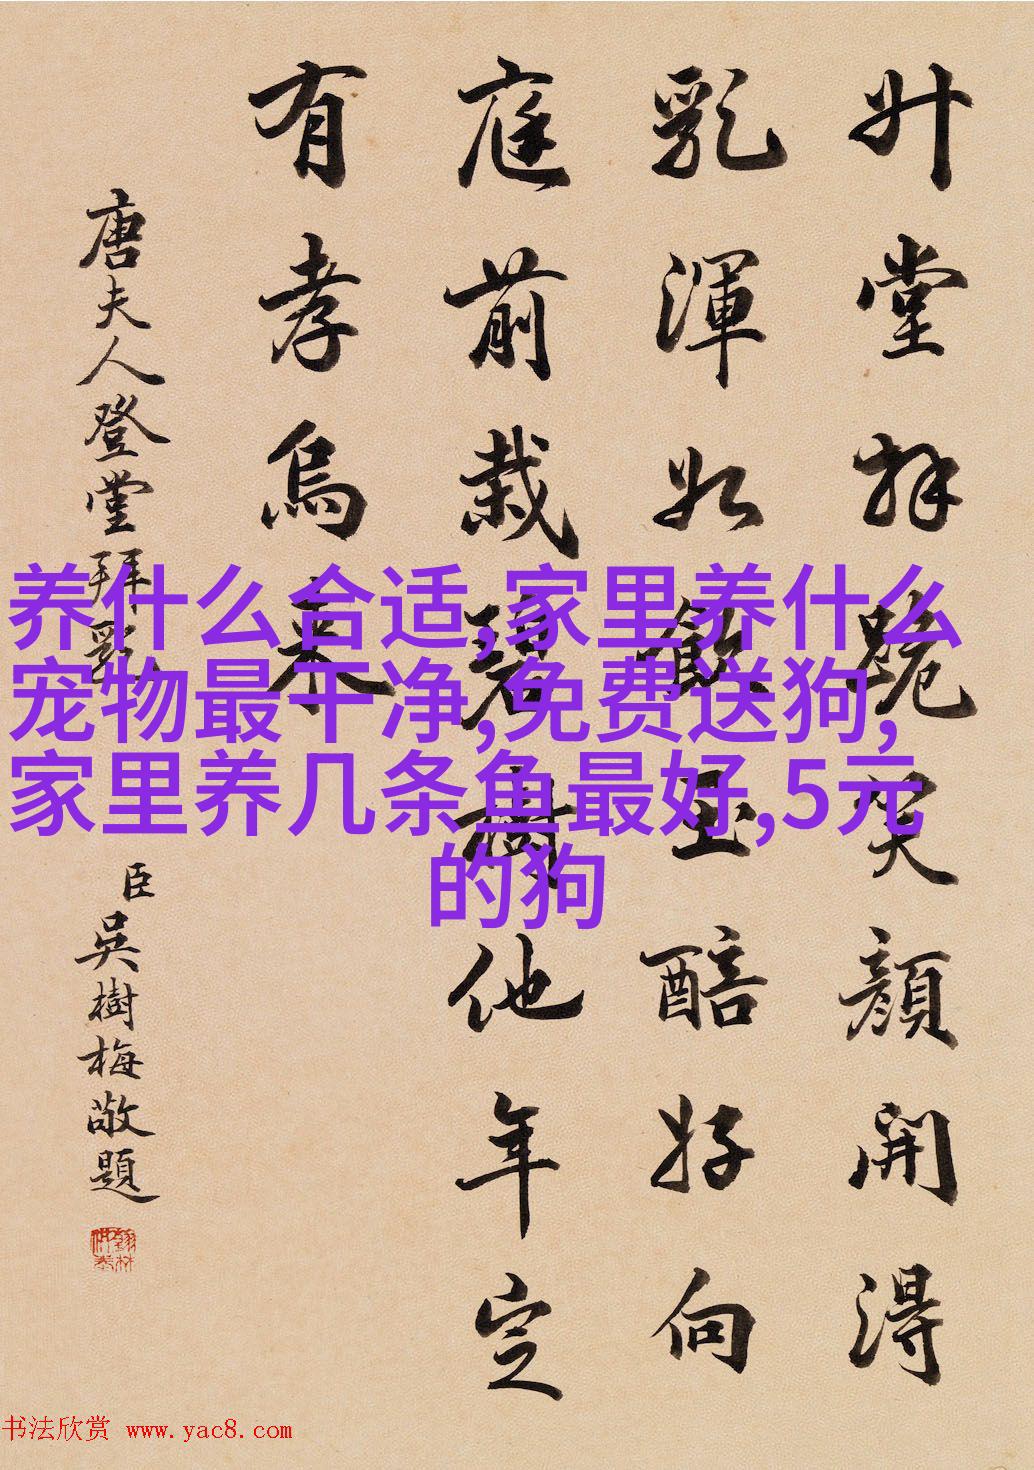 升堂拜跪笑顏開得
乳渾如飲玉醅好向
庭前栽碧樹他年定
有孝烏來
唐夫人登堂拜乳
臣吳樹梅敬題
养什么合适,家里养什么
宠物最干净,免费送狗,
家里养几条鱼最好,5元
的狗
书法欣赏 www.yac8.com